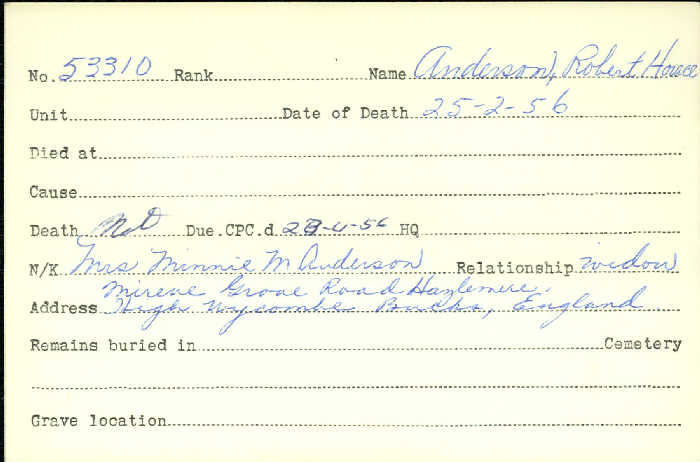 No. 53310 Rank Name Anderson, Robert Horace
Unit Date of Death 25-2-56
Died at
Cause
Death Not Due. CPC.d. 23-4-56 HQ
N/K Mrs Minnie M Anderson Relationship widow
Mirene Grove Road Hazlemere,
Address High Wycombe Bucks, England
Remains buried in Cemetery
Grave location